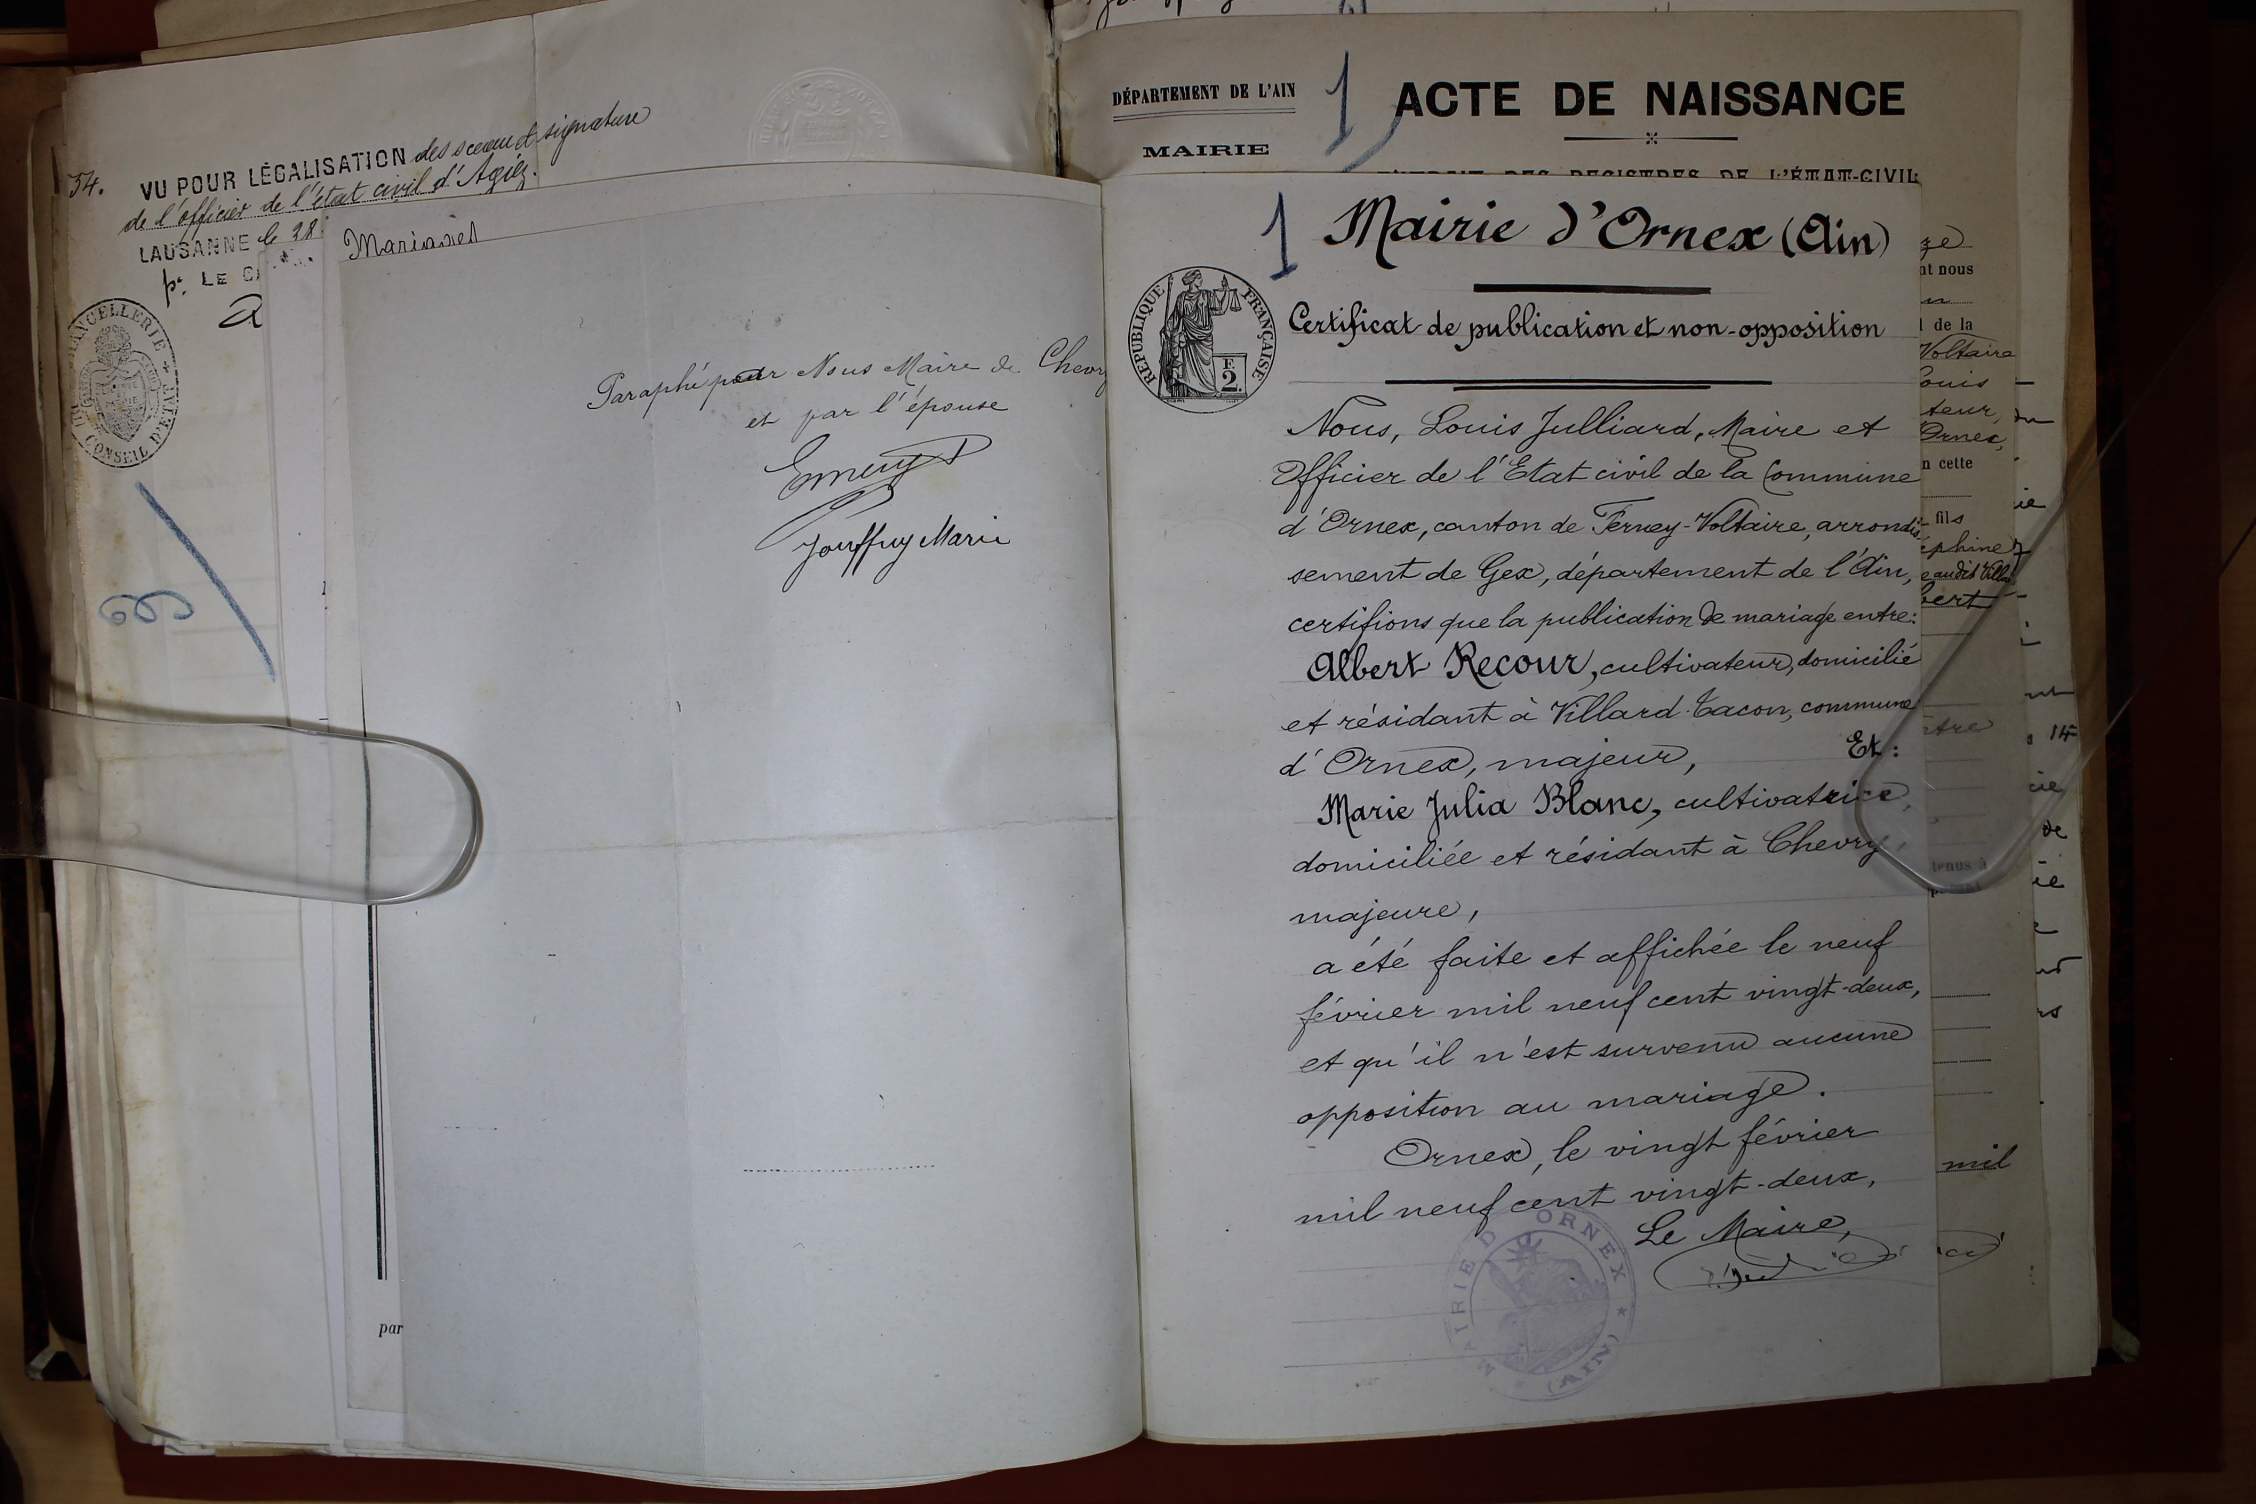 54. VU POUR LÉGALISATION des sceau et signature
de l'officier de l'état civil d'Agiez.
LAUSANNE le 28
pr. LE C
CHANCELLERIE
CONSEIL D'ETAT
Mariages
Paraphé par Nous Maire de Chevry
et par l'épouse
Emery
Jouffrey Marie
par
DÉPARTEMENT DE L'AIN
MAIRIE
1
ACTE DE NAISSANCE
EXTRAIT DES REGISTRES DE L'ÉTAT-CIVIL
1
Mairie d'Ornex (Ain)
RÉPUBLIQUE FRANÇAISE
2F.
Certificat de publication et non-opposition
Nous, Louis Julliard, Maire et
Officier de l'Etat civil de la Commune
d'Ornex, canton de Ferney-Voltaire, arrondis-
sement de Gex, département de l'Ain,
certifions que la publication de mariage entre:
Albert Recour, cultivateur, domicilié
et résidant à Villard-Tacon, commune
d'Ornex, majeur, Et:
Marie Julia Blanc, cultivatrice,
domiciliée et résidant à Chevry,
majeure,
a été faite et affichée le neuf
février mil neuf cent vingt-deux,
et qu'il n'est survenu aucune
opposition au mariage.
Ornex, le vingt février
mil neuf cent vingt-deux,
Le Maire,
MAIRIE D'ORNEX * (AIN)
nt nous
l de la
Voltaire
Louis
teur,
Ornex,
n cette
fils
éphine
e audit Villa
bert
ntre
tenus à
14
de
mil